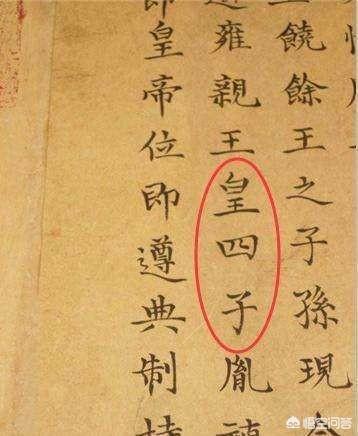 饒餘王之子孫現
雍親王皇四子胤禛
即皇帝位即遵典制持
悟空问答